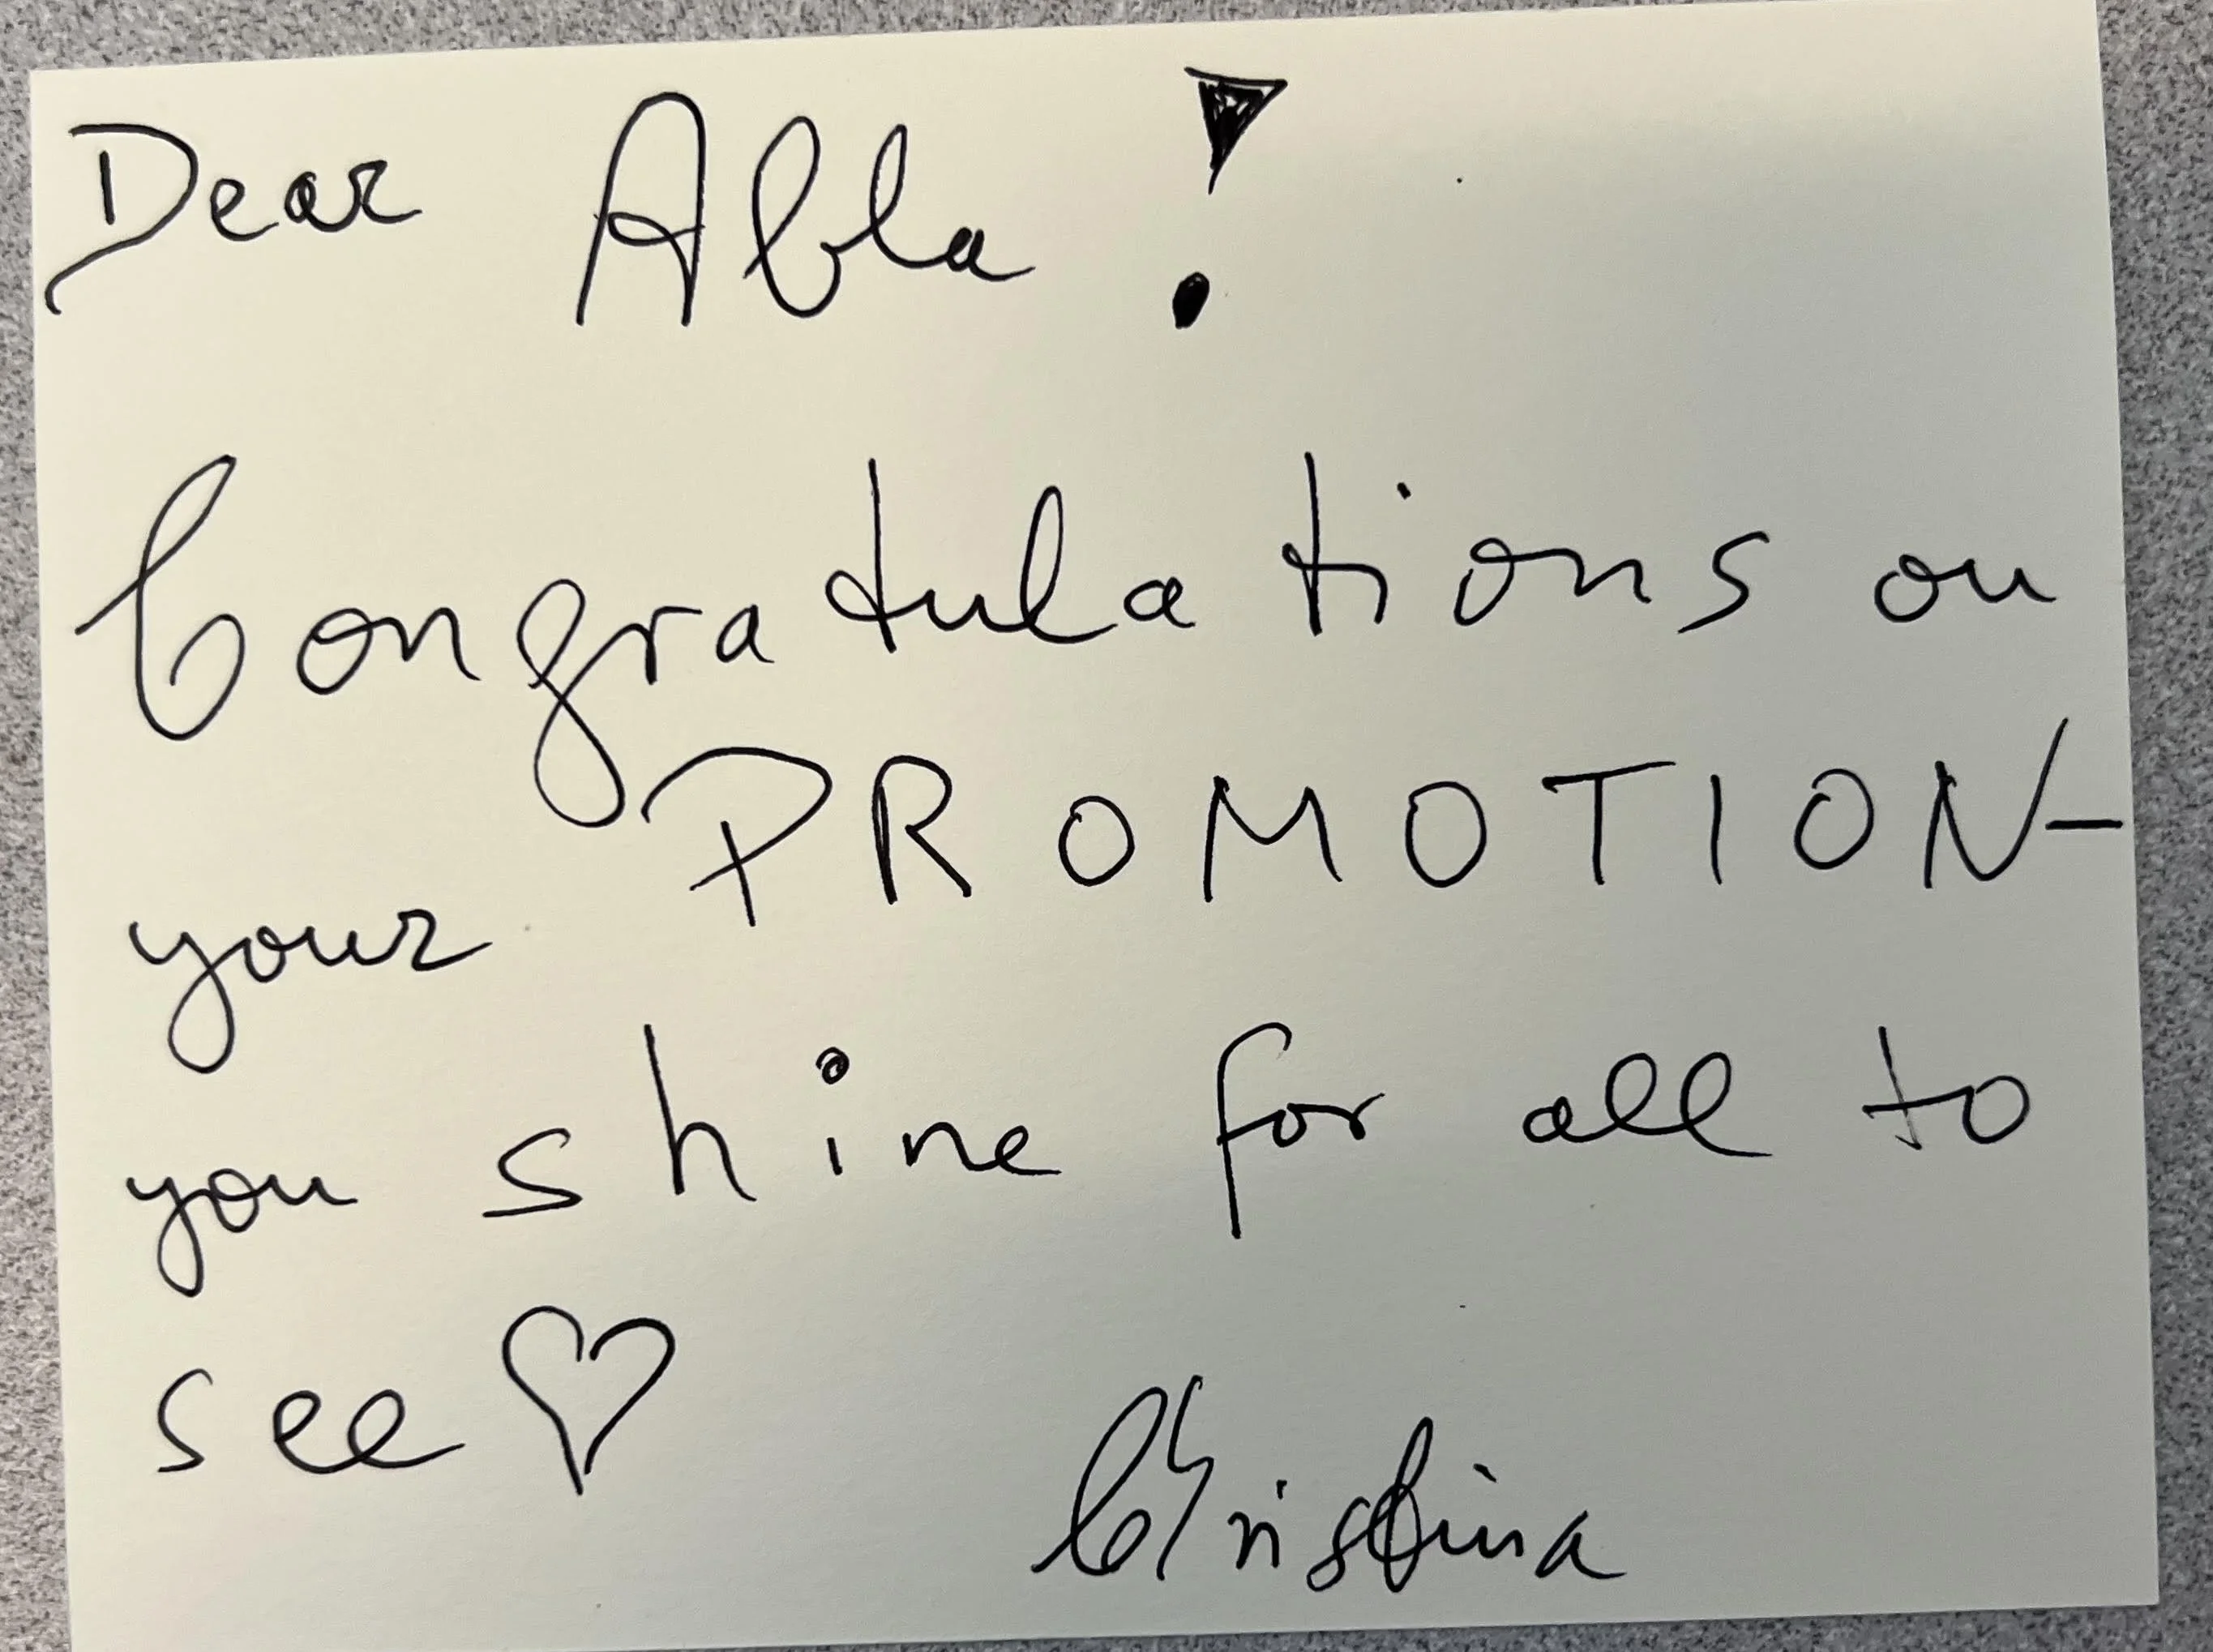 Dear Abla!
Congratulations on
your PROMOTION-
you shine for all to
see ♡
Christina